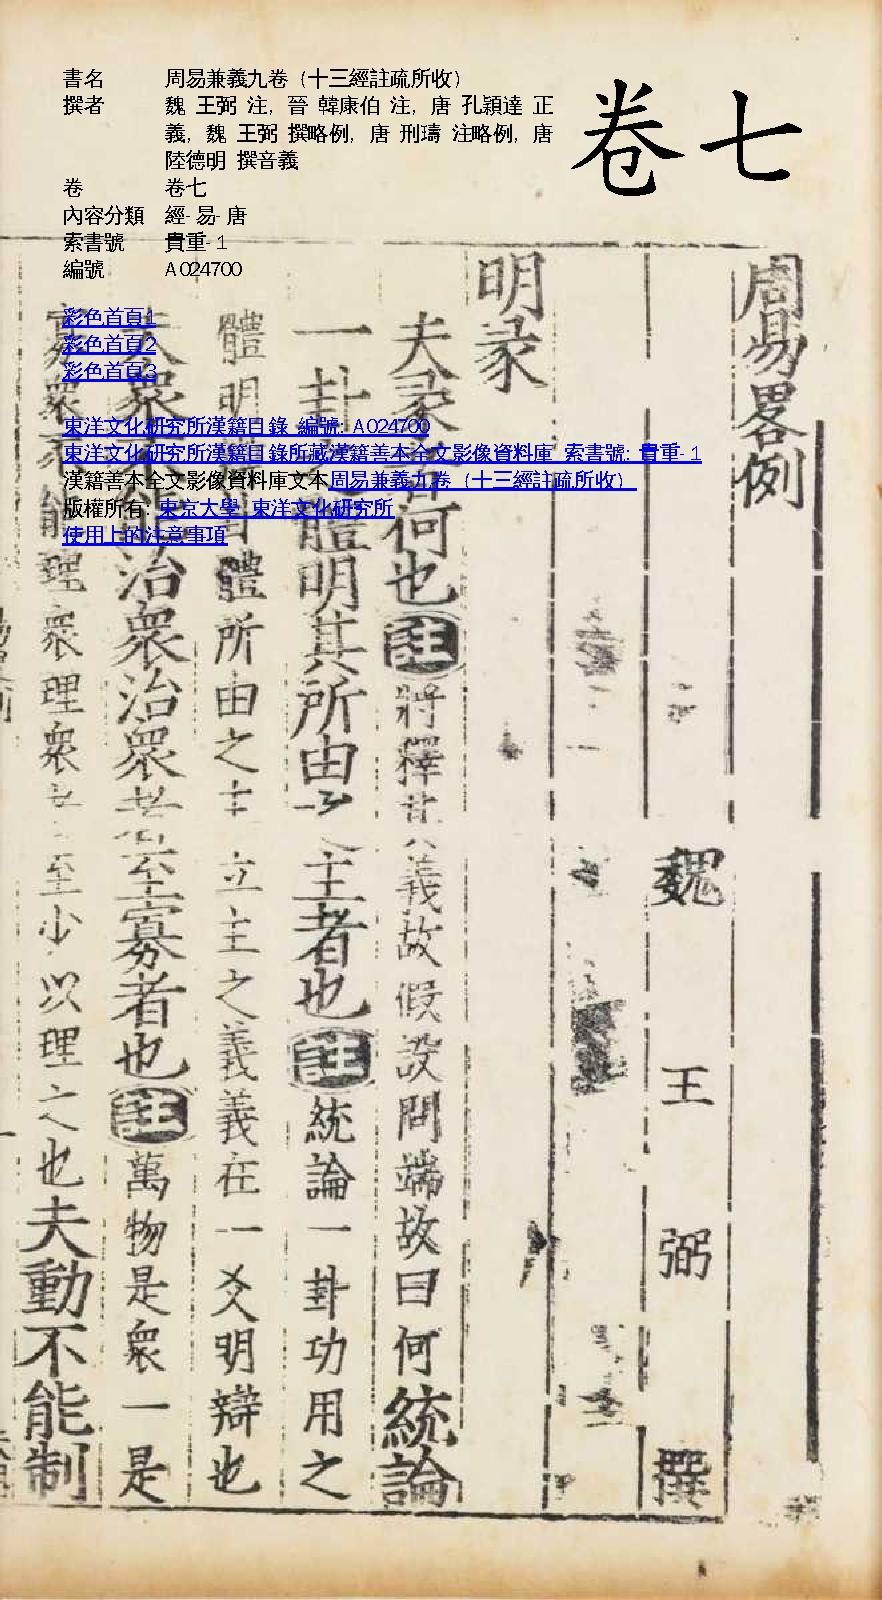 書名 周易兼義九卷（十三經註疏所收）
撰者 魏 王弼 注，晉 韓康伯 注，唐 孔穎達 正
義，魏 王弼 撰略例，唐 刑璹 注略例，唐
陸德明 撰音義
卷 卷七
內容分類 經-易-唐
索書號 貴重-1
編號 A024700
卷七
彩色首頁1
彩色首頁2
彩色首頁3
東洋文化研究所漢籍目錄 編號: A024700
東洋文化研究所漢籍目錄所藏漢籍善本全文影像資料庫 索書號: 貴重-1
漢籍善本全文影像資料庫文本周易兼義九卷（十三經註疏所收）
版權所有: 東京大學 東洋文化研究所
使用上的注意事項
周易畧例
魏 王 弼 撰
明彖
夫彖者何也註將釋其義故假設問端故曰何統論
一卦之體明其所由之主者也註統論一卦功用之
體明辯卦體所由之主立主之義義在一爻明辯也
夫衆不能治衆治衆者至寡者也註萬物是衆一是
寡衆不能理衆理衆者至少以理之也夫動不能制